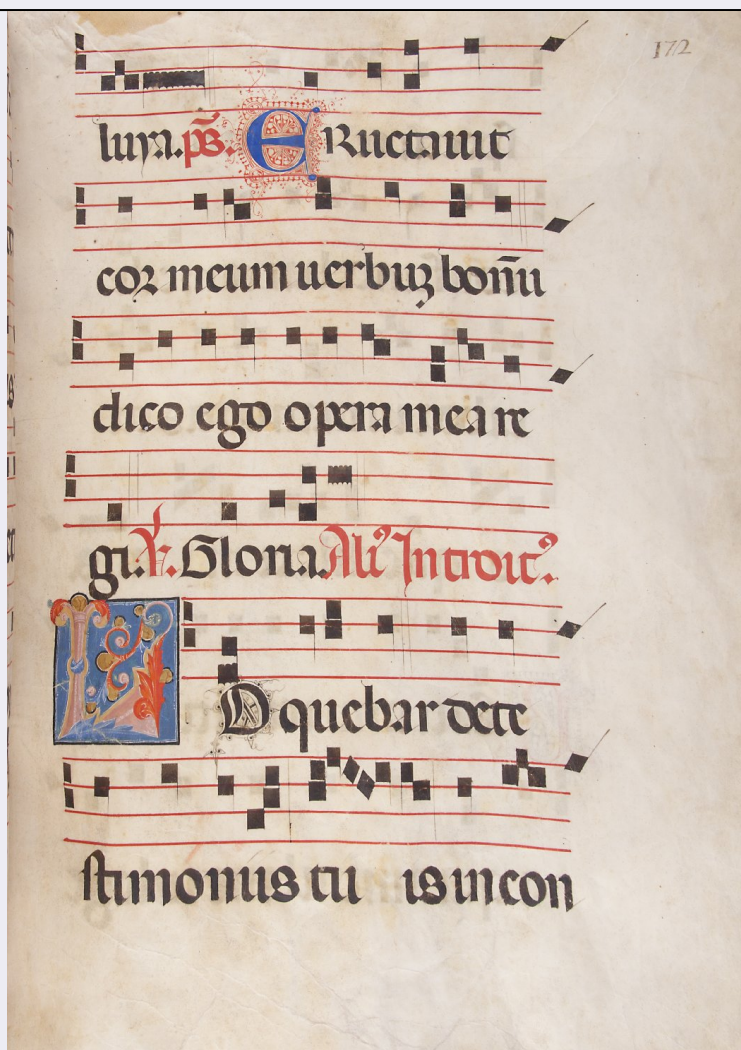 172
luya. ps̄. ERuctauit
cor meum uerbuꝫ bonū
dico ego opera mea re
gi. ℣. Gloria. Aliꝰ Introitꝰ.
LOquebar de te
stimoniis tu is in con